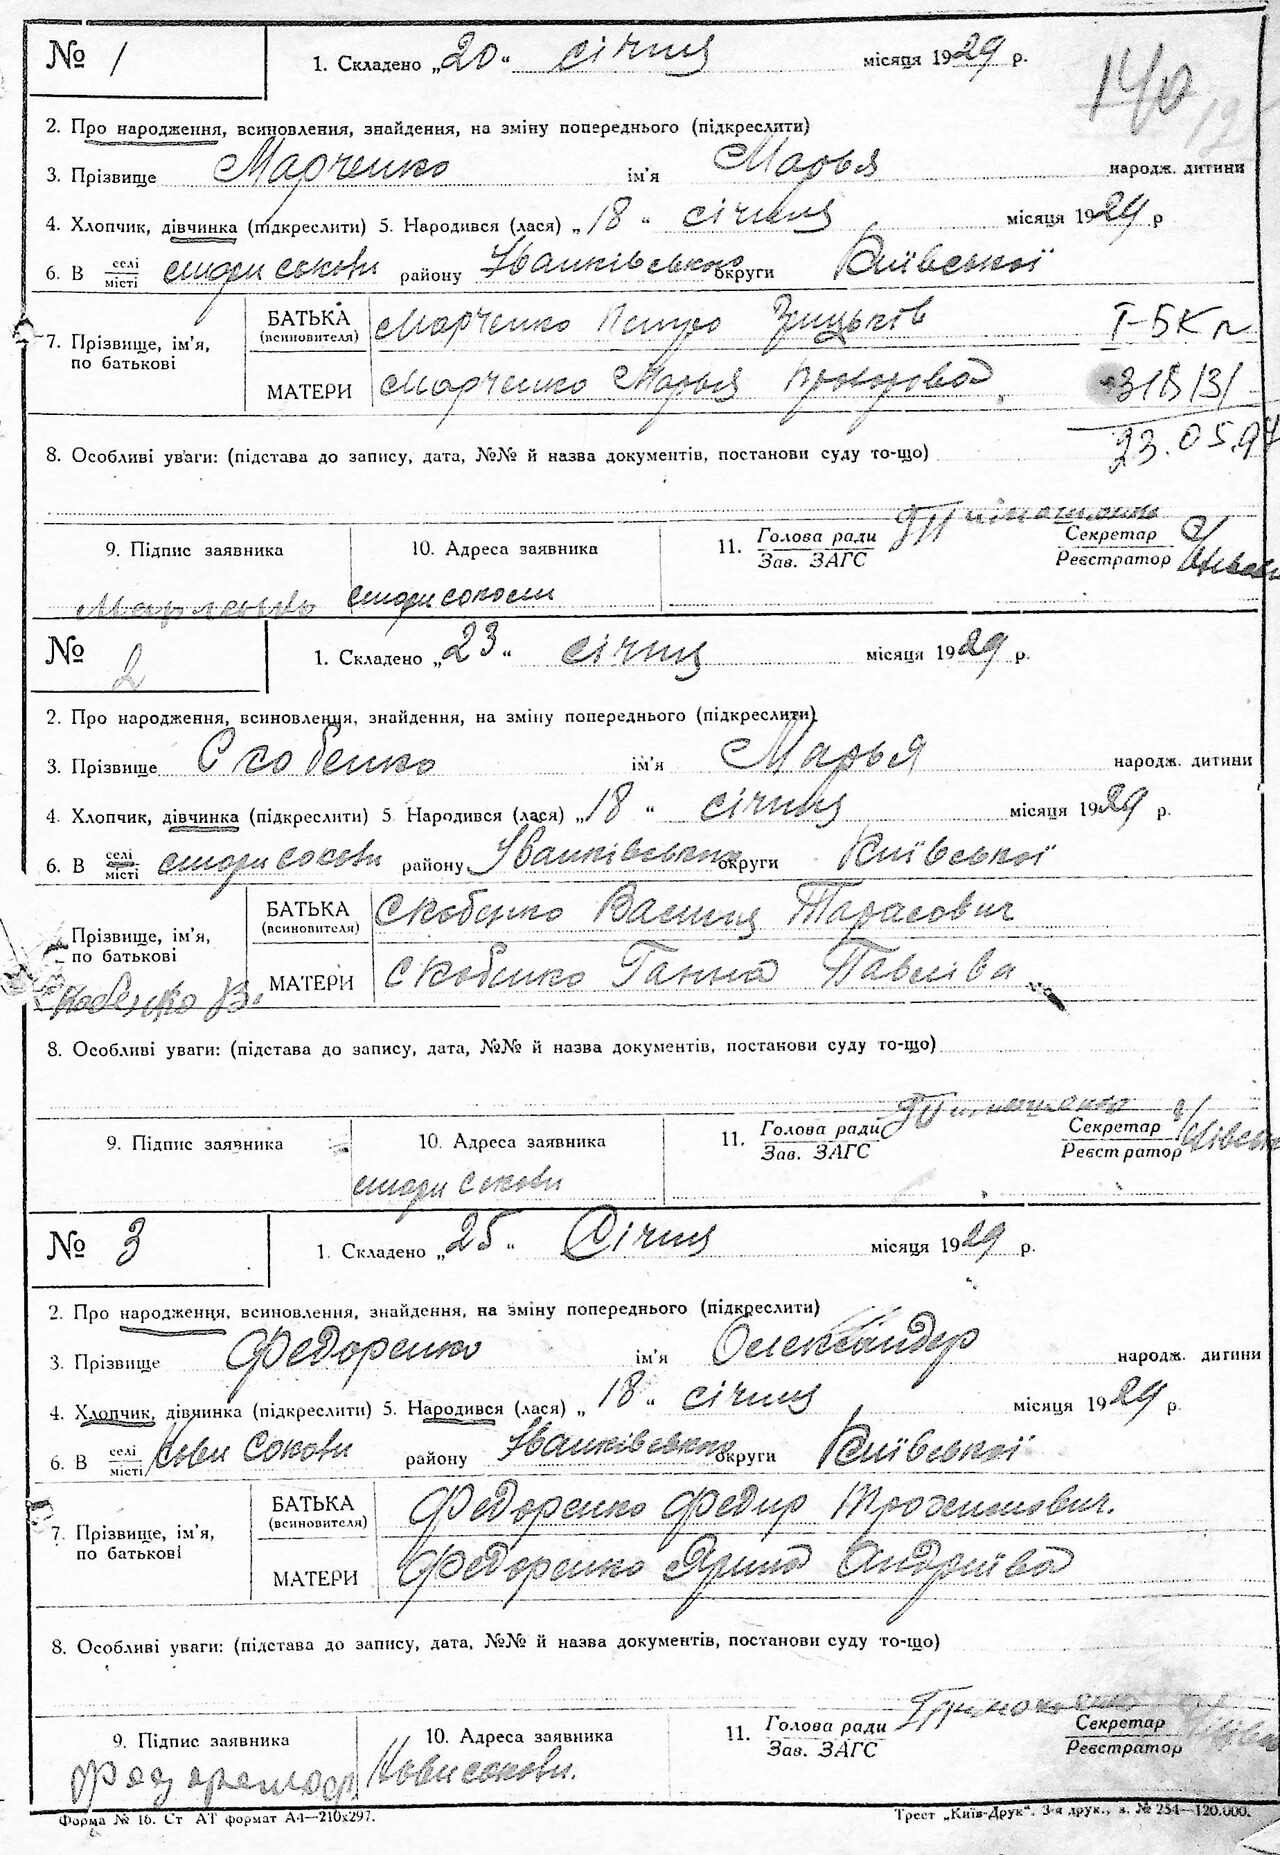 № 1
1. Складено „20" січня місяця 1929 р.
140
2. Про народження, всиновлення, знайдення, на зміну попереднього (підкреслити)
3. Прізвище Марченко ім'я Марья народж. дитини
4. Хлопчик, дівчинка (підкреслити) 5. Народився (лася) „18" січня місяця 1929 р
6. В селі місті стари сокови району Іванківського округи Київської
7. Прізвище, ім'я, по батькові
БАТЬКА (всиновителя) Марченко Петро Грицьків
І-БК №
МАТЕРИ Марченко Марья Прокорова
318131
23.05.97
8. Особливі уваги: (підстава до запису, дата, №№ й назва документів, постанови суду то-що)
9. Підпис заявника
10. Адреса заявника стари соколи
11. Голова ради Зав. ЗАГС Тимошенко Секретар Реєстратор
№ 2
1. Складено „23" січня місяця 1929 р.
2. Про народження, всиновлення, знайдення, на зміну попереднього (підкреслити)
3. Прізвище Скобенко ім'я Марья народж. дитини
4. Хлопчик, дівчинка (підкреслити) 5. Народився (лася) „18" січня місяця 1929 р.
6. В селі місті стари сокови району Іванківського округи Київської
Прізвище, ім'я, по батькові
БАТЬКА (всиновителя) Скобенко Василя Тарасович
МАТЕРИ Скобенко Ганна Павлива
Скобенко В.
8. Особливі уваги: (підстава до запису, дата, №№ й назва документів, постанови суду то-що)
9. Підпис заявника
10. Адреса заявника стари сокови
11. Голова ради Зав. ЗАГС Тимошенко Секретар Реєстратор
№ 3
1. Складено „25" Січня місяця 1929 р.
2. Про народження, всиновлення, знайдення, на зміну попереднього (підкреслити)
3. Прізвище Федоренко ім'я Олександер народж. дитини
4. Хлопчик, дівчинка (підкреслити) 5. Народився (лася) „18" січня місяця 1929 р.
6. В селі місті Нови Сокови району Іванківського округи Київської
7. Прізвище, ім'я, по батькові
БАТЬКА (всиновителя) Федоренко Федир Трохимович.
МАТЕРИ Федоренко Ярина Андріїва
8. Особливі уваги: (підстава до запису, дата, №№ й назва документів, постанови суду то-що)
9. Підпис заявника
10. Адреса заявника Нови сокови.
11. Голова ради Зав. ЗАГС Тимошенко Секретар Реєстратор
Форма № 16. Ст АТ формат А4—210х297.
Трест „Київ-Друк". 3-я друк., з. № 254—120.000.